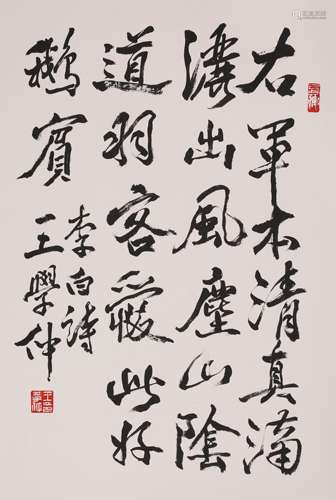 右軍本清真瀟
灑出風塵山陰
道羽客愛此好
鵝賓
李白詩
王學仲